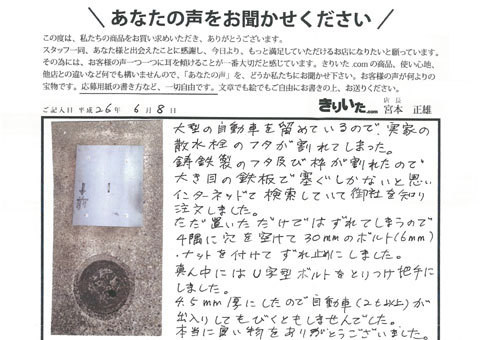 あなたの声をお聞かせください
この度は、私たちの商品をお買い求めいただき、ありがとうございます。
スタッフ一同、あなた様と出会えたことに感謝し、今日より、もっと満足していただけるお店になりたいと願っています。
その為には、お客様の声一つ一つに耳を傾けることが一番大切だと感じています。きりいた.comの商品、使い心地、
他店との違いなど何でも構いませんので、「あなたの声」を、どうか私たちにお聞かせ下さい。お客様の声が何よりの
宝物です。応募用紙の書き方など、一切自由です。文章でも絵でもご自由にお書きの上、お送りください。
ご記入日 平成26年 6月 8日
きりいた.com 店長 宮本 正雄
大型の自動車を留めているので、実家の
散水栓のフタが割れてしまった。
鋳鉄製のフタ及び枠が割れたので
大き目の鉄板で塞ぐしかないと思い
インターネットで検索していて御社を知り
注文しました。
ただ置いただけではずれてしまうので
4隅に穴を空けて30mmのボルト(6mm)
・ナットを付けてずれ止めにしました。
真ん中にはU字型ボルトをとりつけ把手に
しました。
4.5mm厚にしたので自動車(2t以上)が
出入りしてもびくともしませんでした。
本当に良い物をありがとうございました。